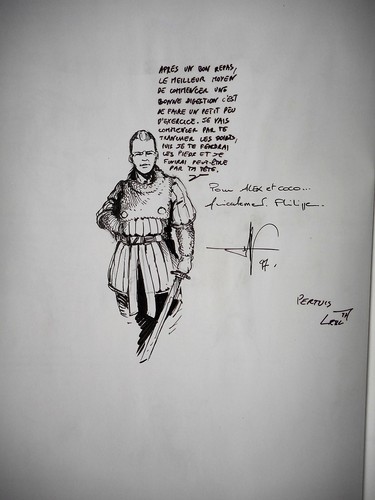 APRÈS UN BON REPAS,
LE MEILLEUR MOYEN
DE COMMENCER UNE
BONNE DIGESTION C'EST
DE FAIRE UN PETIT PEU
D'EXERCICE. JE VAIS
COMMENCER PAR TE
TRANCHER LES
PUIS JE TE FENDRAI
LES PIEDS ET JE
FINIRAI PEUT-ÊTRE
PAR TA TÊTE.
Pour ALEX et COCO...
Amicalement. Philippe.
97.
PERTUIS